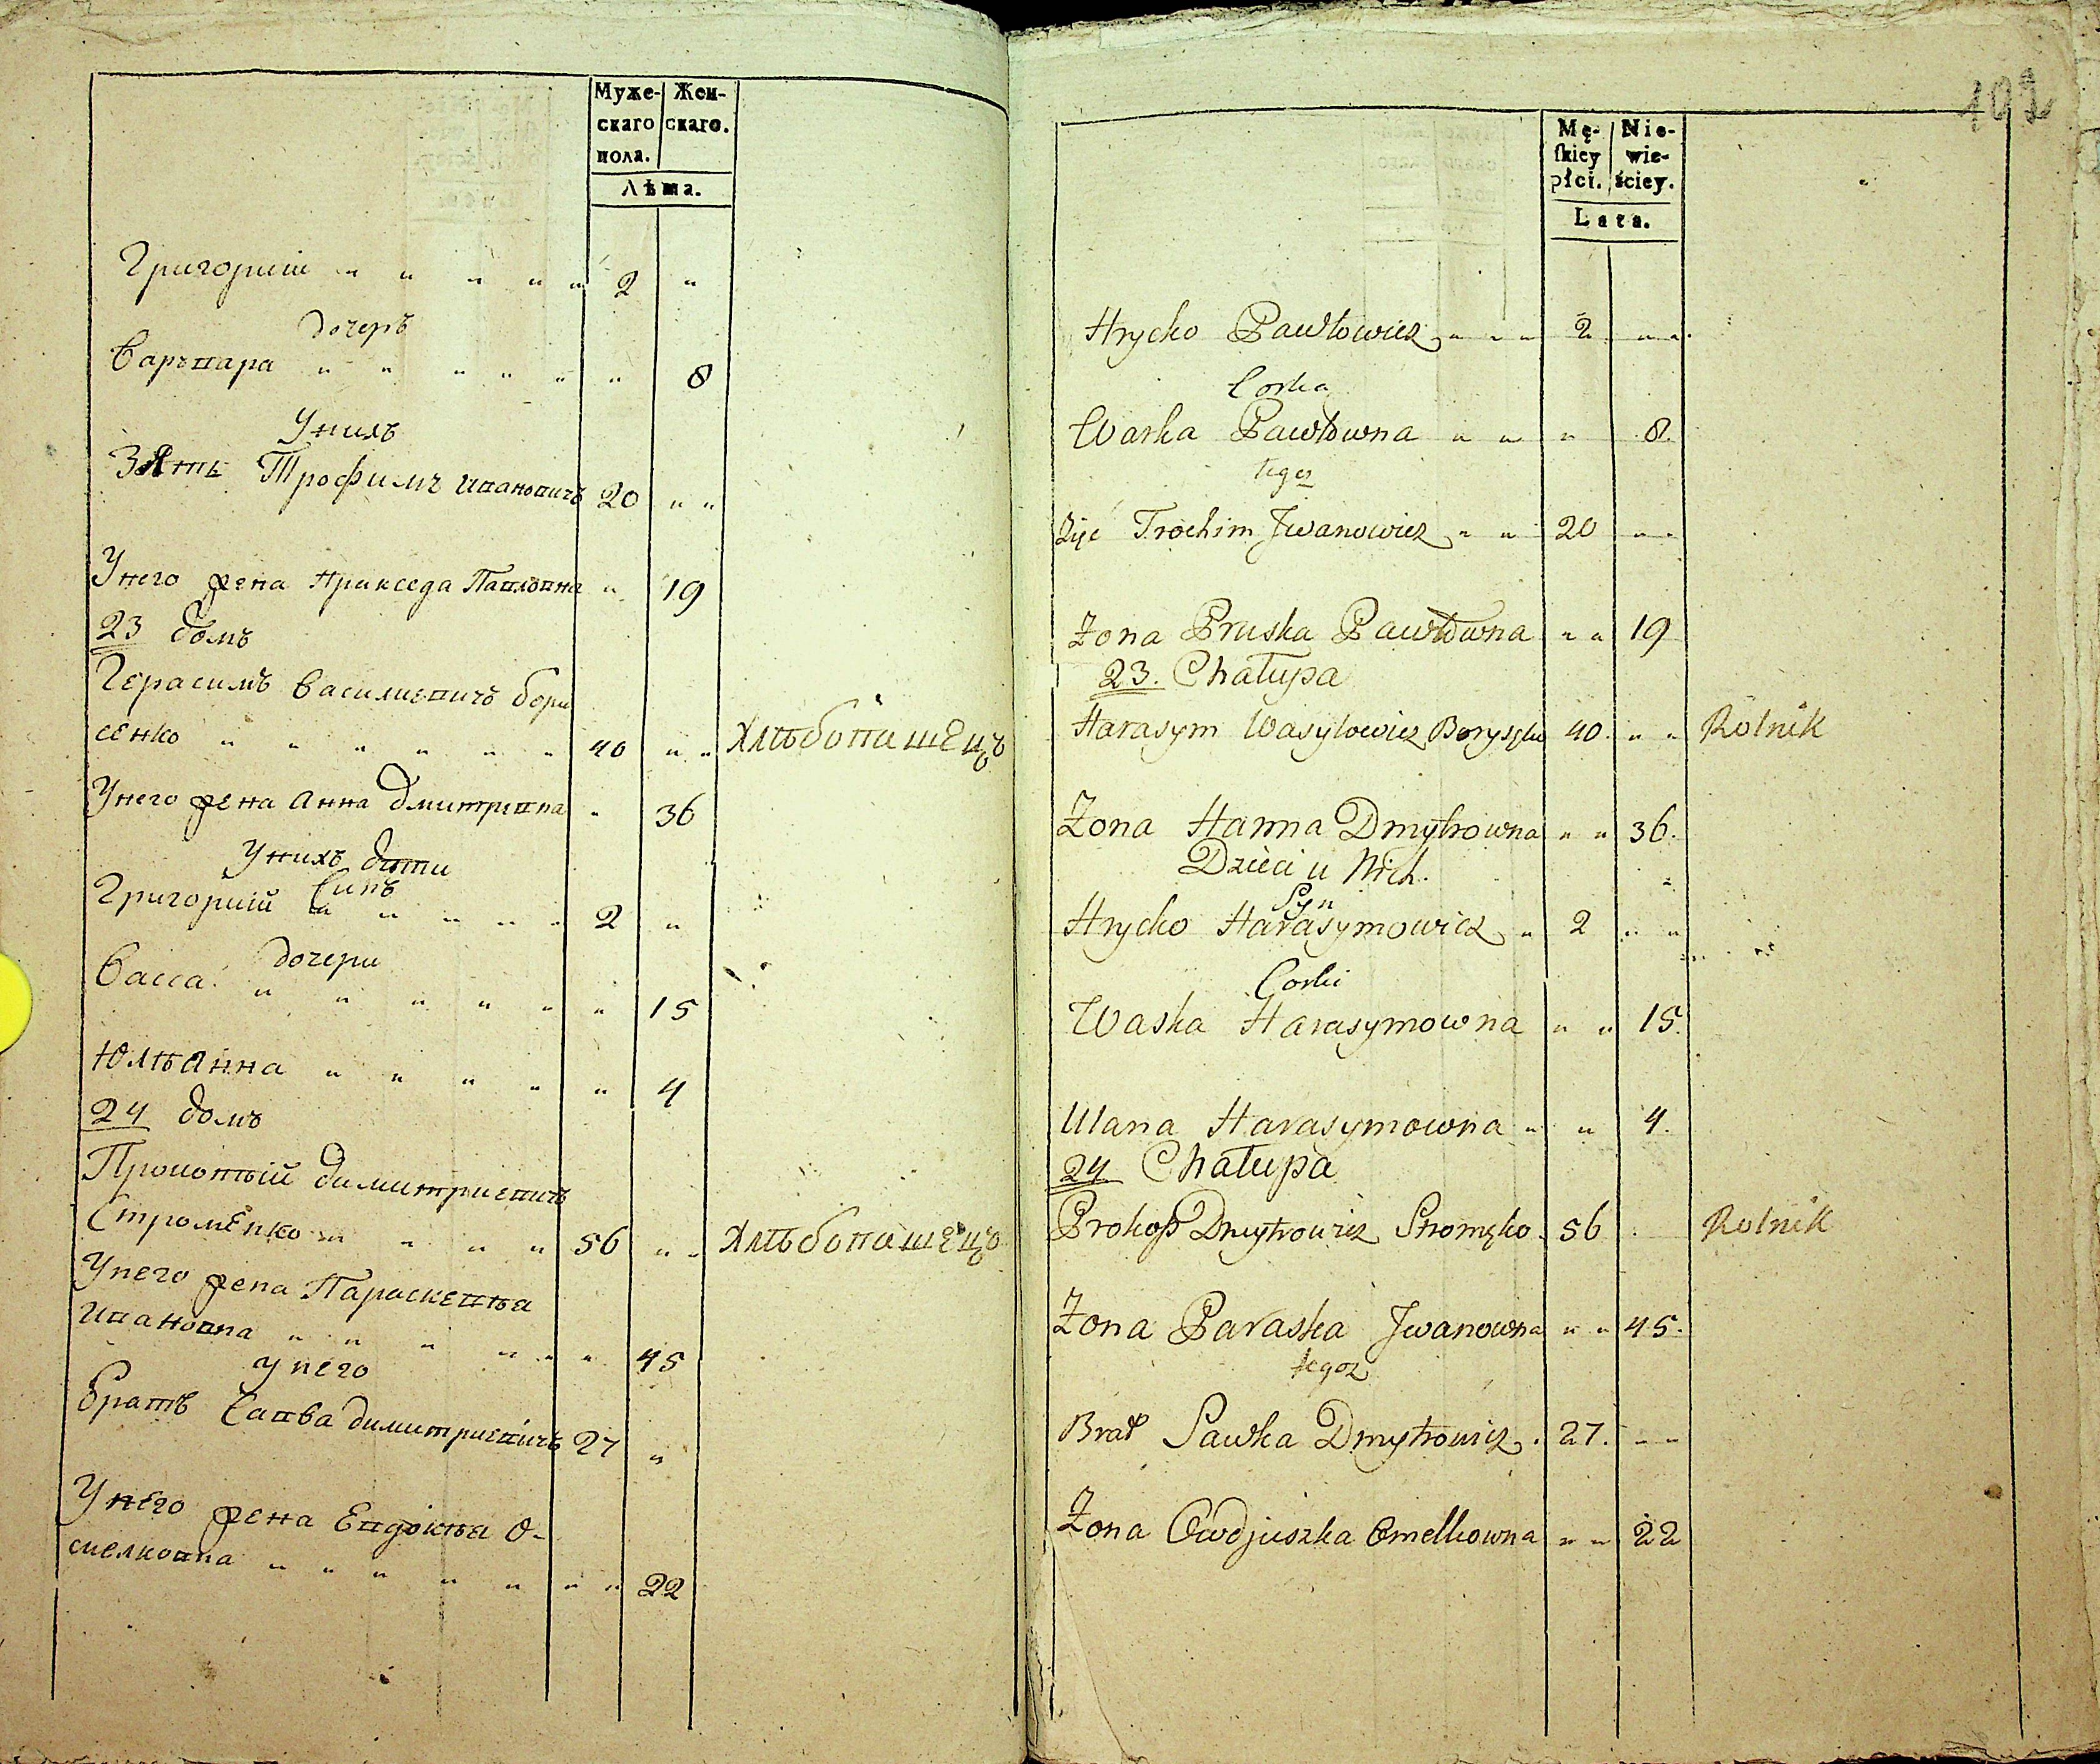 Муже-
скаго
пола.
Жен-
скаго.
Лѣта.
Григорий " " " " " 2 "
дочеръ
Варъвара " " " " " " 8
Унихъ
Зять Трофимъ Ивановичъ 20 " "
Унего жена Пракседа Павловна " 19
23 домъ
Герасимъ Василиевичъ Бори
сенко " " " " " " 40 " " Хлѣбопашецъ
Унего жена Анна Дмитревна " 36
Унихъ дѣти
Синъ
Григорий " " " " " 2 "
дочери
Васса " " " " " " 15
Юлѣянна " " " " " 4
24 домъ
Прокопѣй Димитриевичъ
Строменко " " " " 56 " " Хлѣбопашецъ
Унего жена Параскевѣя
Ивановна " " " " " " 45
Унего
Братъ Савва Димитриевичъ 27 "
Унего жена Евдокѣя О-
мелковна " " " " " " " 22
102
Mę-
skiey
płci.
Nie-
wie-
ściey.
Lata.
Hrycko Pawłowicz " " " 2 " "
Corka
Warka Pawłowna " " " 8.
tegoz
Zięć Trochim Jwanowicz " " 20 " "
Zona Pruska Pawłowna " " 19
23. Chałupa
Harasym Wasylowicz Borysęko 40. " " Rolnik
Zona Hanna Dmytrowna " " 36.
Dzieci u Nich.
Syn
Hrycko Harasymowicz " 2 " "
Corki
Waska Harasymowna " " 15.
Ulana Harasymowna " " 4.
24 Chałupa
Prokop Dmytrowicz Stromęko 56 . Rolnik
Zona Paraska Jwanowna " " 45.
tegoz
Brat Sawka Dmytrowicz . 27. " "
Zona Owdjuszka Omelkowna " " 22